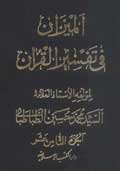 الميزان
في تفسير القرآن
لمؤلفه الأستاذ العلامة
السيد محمد حسين الطباطبائي
الجزء